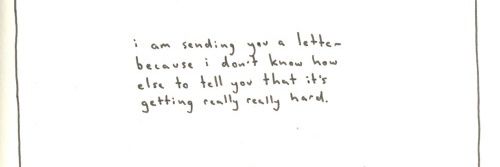 i am sending you a letter
because i don't know how
else to tell you that it's
getting really really hard.